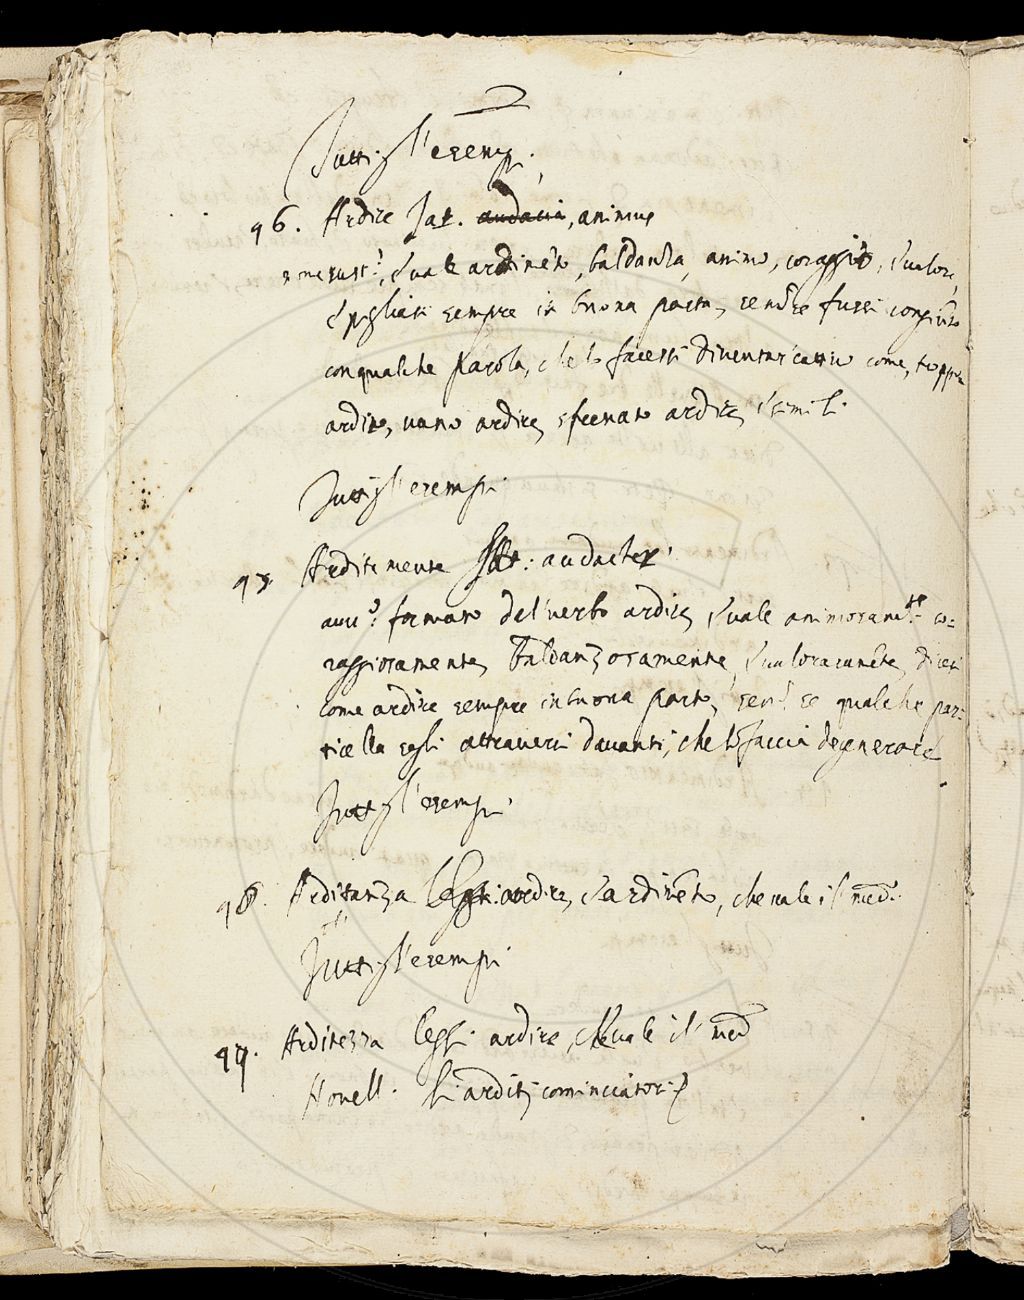 Tutti gl'esempi.
96. Ardire Lat. audacia, animus
nome sust.o, e vale ardim.to, baldanza, animo, coraggio, e valore,
e pigliasi sempre in buona parte, se non se fussi congiunto
con qualche parola, che lo facessi diventar cattivo come, troppo
ardire, vano ardire, sfrenato ardire, e simili.
Tutti gl'esempi
97. Arditamente Lat: audacter
avv.o formato del verbo ardire, e vale animosam.te co=
raggiosamente, baldanzosamente, e valorosam.te, dicesi
come ardire sempre in buona parte, se non se qualche par=
ticella segli attraversi davanti, che lo faccia degenerare
Tutti gl'esempi
98. Arditanza leggi: ardire, e ardim.to, che vale il med.o
Tutti gl'esempi
99. Arditezza leggi ardire, che vale il med.o
Novell. gli arditi cominciatori